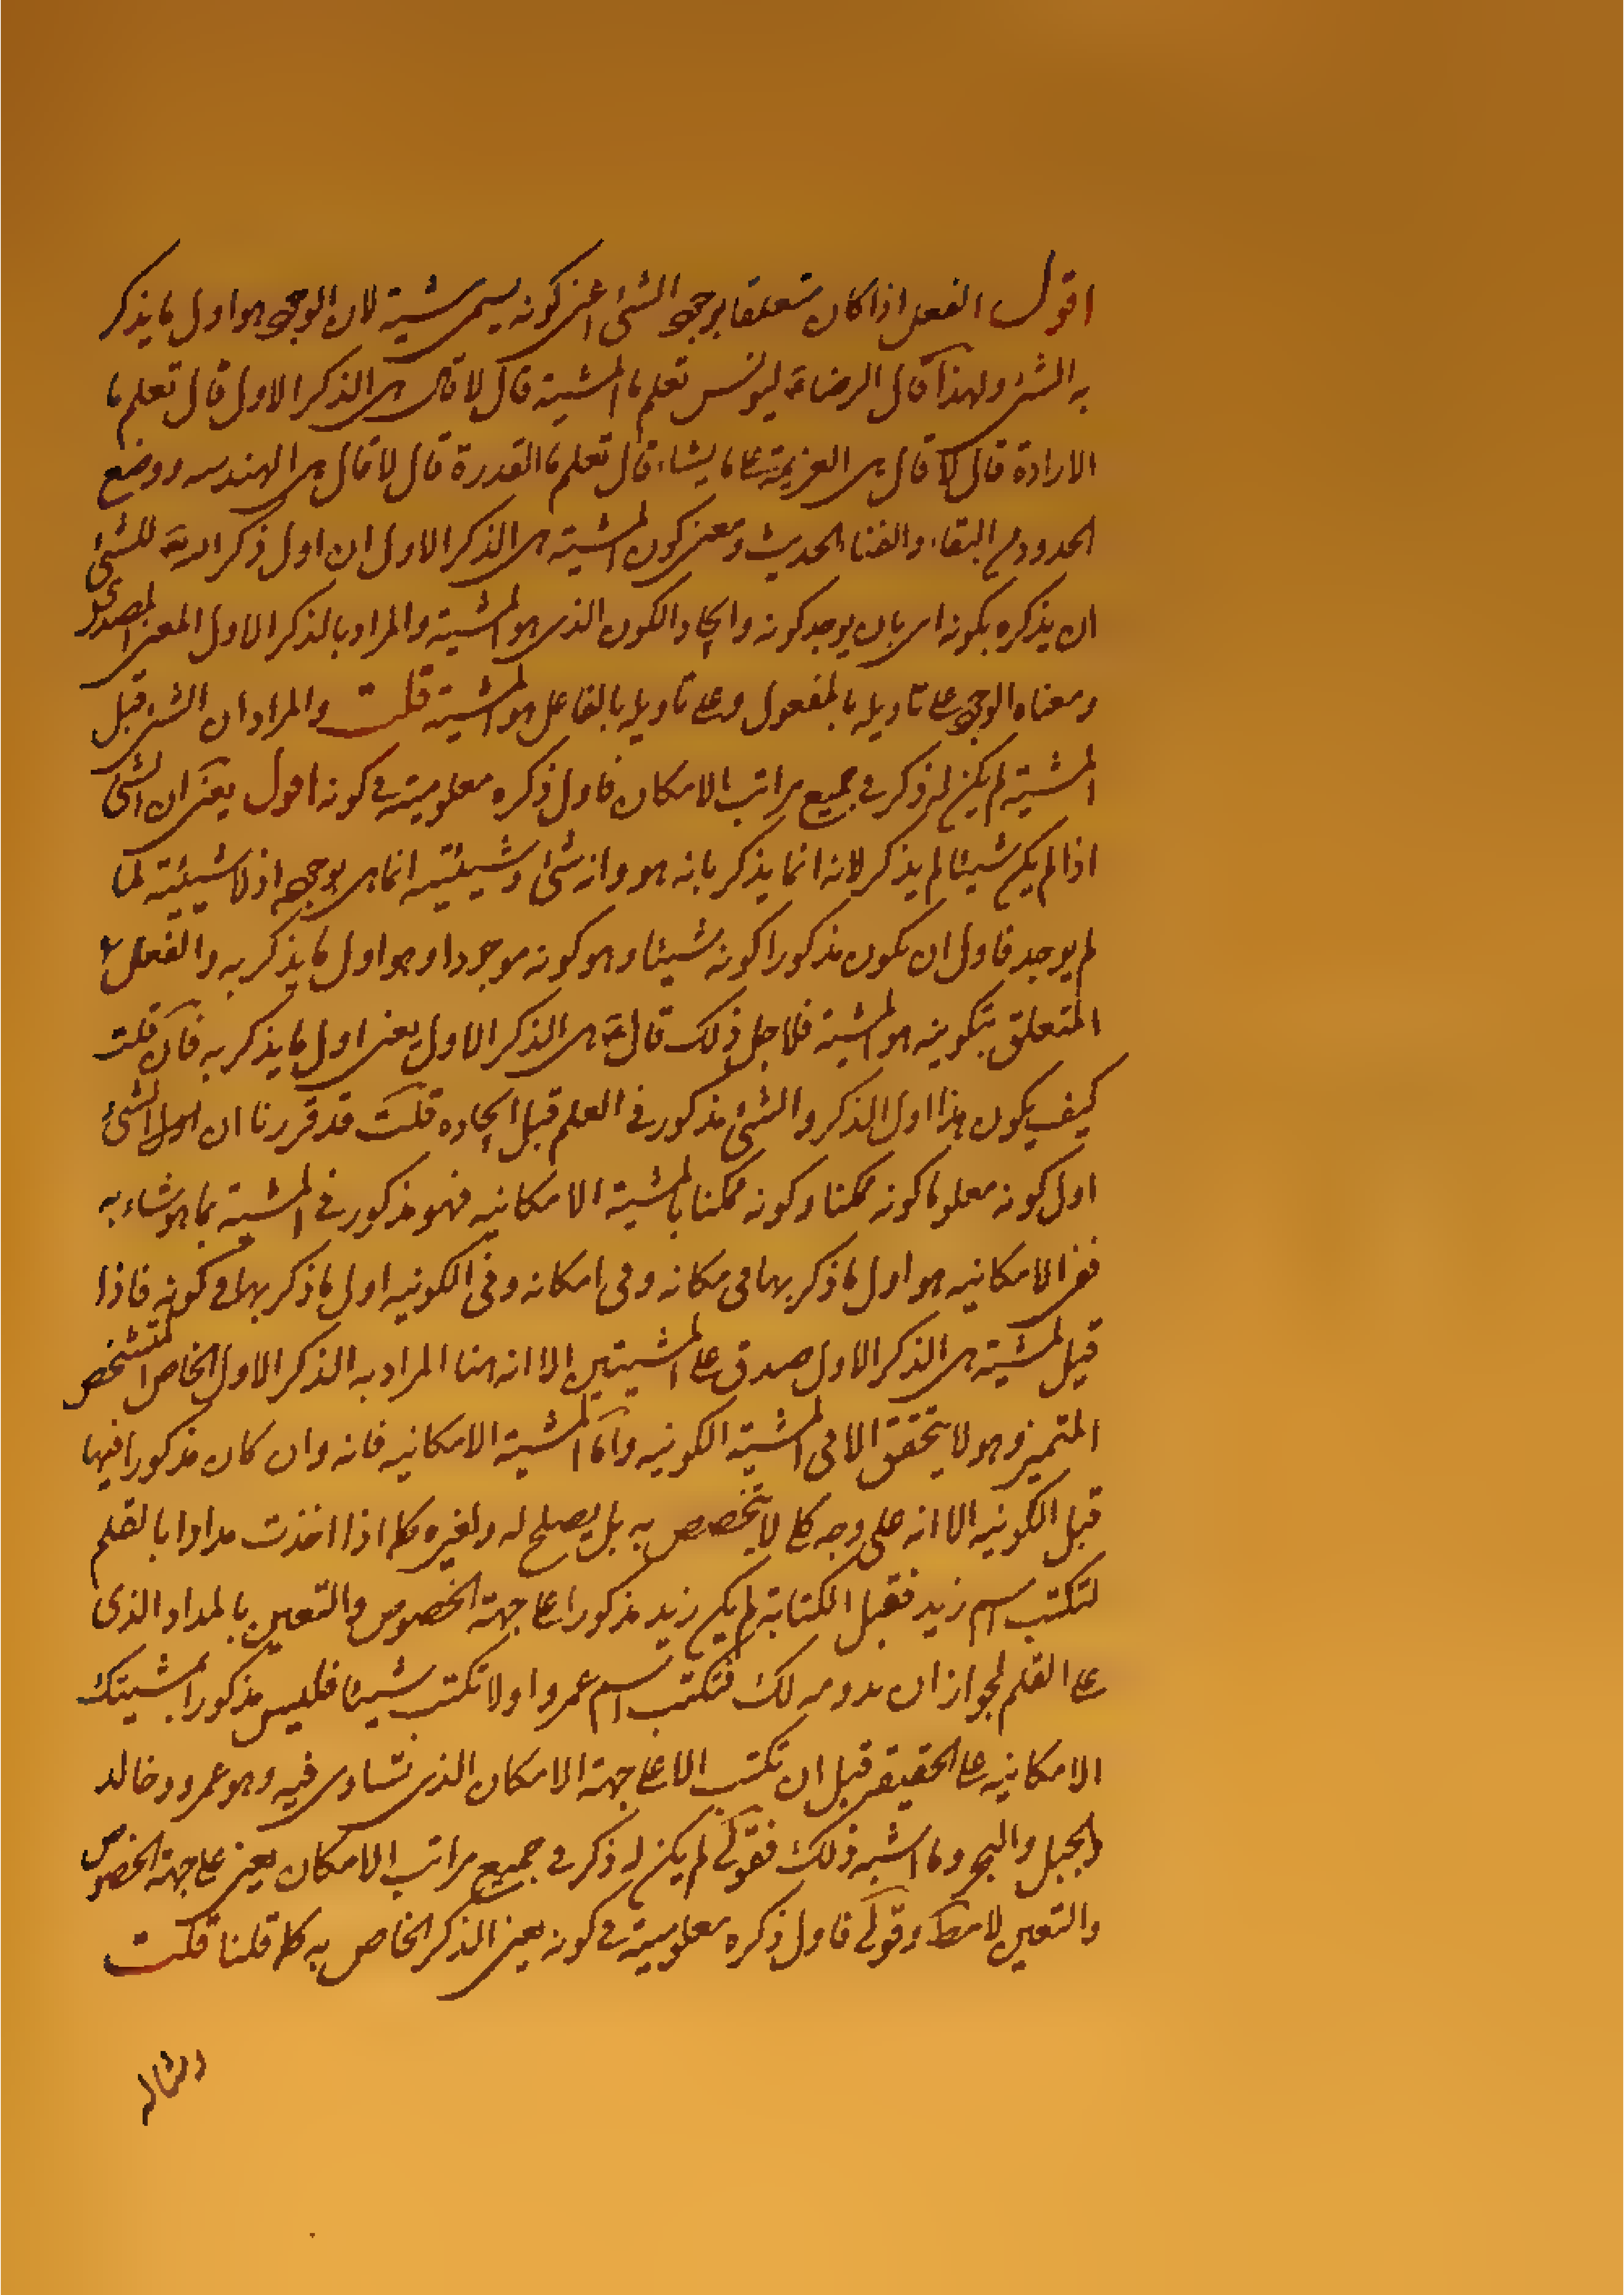 اقول الفعل اذا كان متعلقا بوجود الشئ اعنى كونه يسمى مشية لان الوجود هو اول ما يذكر
به الشئ ولهذا قال الرضا ع ليونس تعلم ما المشية قال لا قال هى الذكر الاول قال تعلم ما
الارادة قال لا قال هى العزيمة على ما يشاء قال تعلم ما القدرة قال لا قال هى الهندسه ووضع
الحدود من البقاء والفنا الحديث ومعنى كون المشية هى الذكر الاول ان اول ذكر الله تع للشئ
ان يذكره بكونه اى بان يوجد كونه وايجاد الكون الذى هو المشية والمراد بالذكر الاول المعنى المصدرى
ومعناه الوجود على تاويله بالمفعول وعلى تاويله بالفاعل هو المشية قلت والمراد ان الشئ قبل
المشية لم يكن له ذكر فى جميع مراتب الامكان فاول ذكره معلوميته فى كونه اقول يعنى ان الشئ
اذا لم يكن شيئا لم يذكر لانه انما يذكر بانه هو وانه شئ وشيئيته انما هى بوجوده اذ لا شيئية لما
لم يوجد فاول ان يكون مذكورا كونه شيئا وهو كونه موجودا وهو اول ما يذكر به والفعل
المتعلق بتكوينه هو المشية فلاجل ذلك قال ع هى الذكر الاول يعنى اول ما يذكر به فان قلت
كيف يكون هذا اول الذكر والشئ مذكور فى العلم قبل ايجاده قلت قد قررنا ان الشئ
اول كونه معلوما كونه ممكنا وكونه ممكنا بالمشية الامكانيه فهو مذكور فى المشية بما هو شاء به
ففى الامكانيه هو اول ما ذكر بها فى مكانه وفى امكانه وفى الكونيه اول ما ذكر بها فى كونه فاذا
قيل المشية هى الذكر الاول صدق على المشيتين الا انه هنا المراد به الذكر الاول الخاص المتشخص
المتميز وهو لا يتحقق الا فى المشية الكونيه واما المشية الامكانيه فانه وان كان مذكورا فيها
قبل الكونيه الا انه على وجه كلى لا يتخصص به بل يصلح له ولغيره كما اذا اخذت مدادا بالقلم
لتكتب اسم زيد فقبل الكتابة لم يكن زيد مذكورا على جهة الخصوص والتعين بالمداد الذى
على القلم لجواز ان يبدو لك فتكتب اسم عمرو او لا تكتب شيئا فليس مذكورا بمشيتك
الامكانيه على الحقيقة قبل ان تكتب الا على جهة الامكان الذى تساوى فيه وهو عمرو وخالد
والجبل والبحر وما اشبه ذلك فقولى لم يكن له ذكر فى جميع مراتب الامكان يعنى على جهة الخصوص
والتعين لا مط وقولى فاول ذكره معلوميته فى كونه يعنى الذكر الخاص به كما قلنا قلت